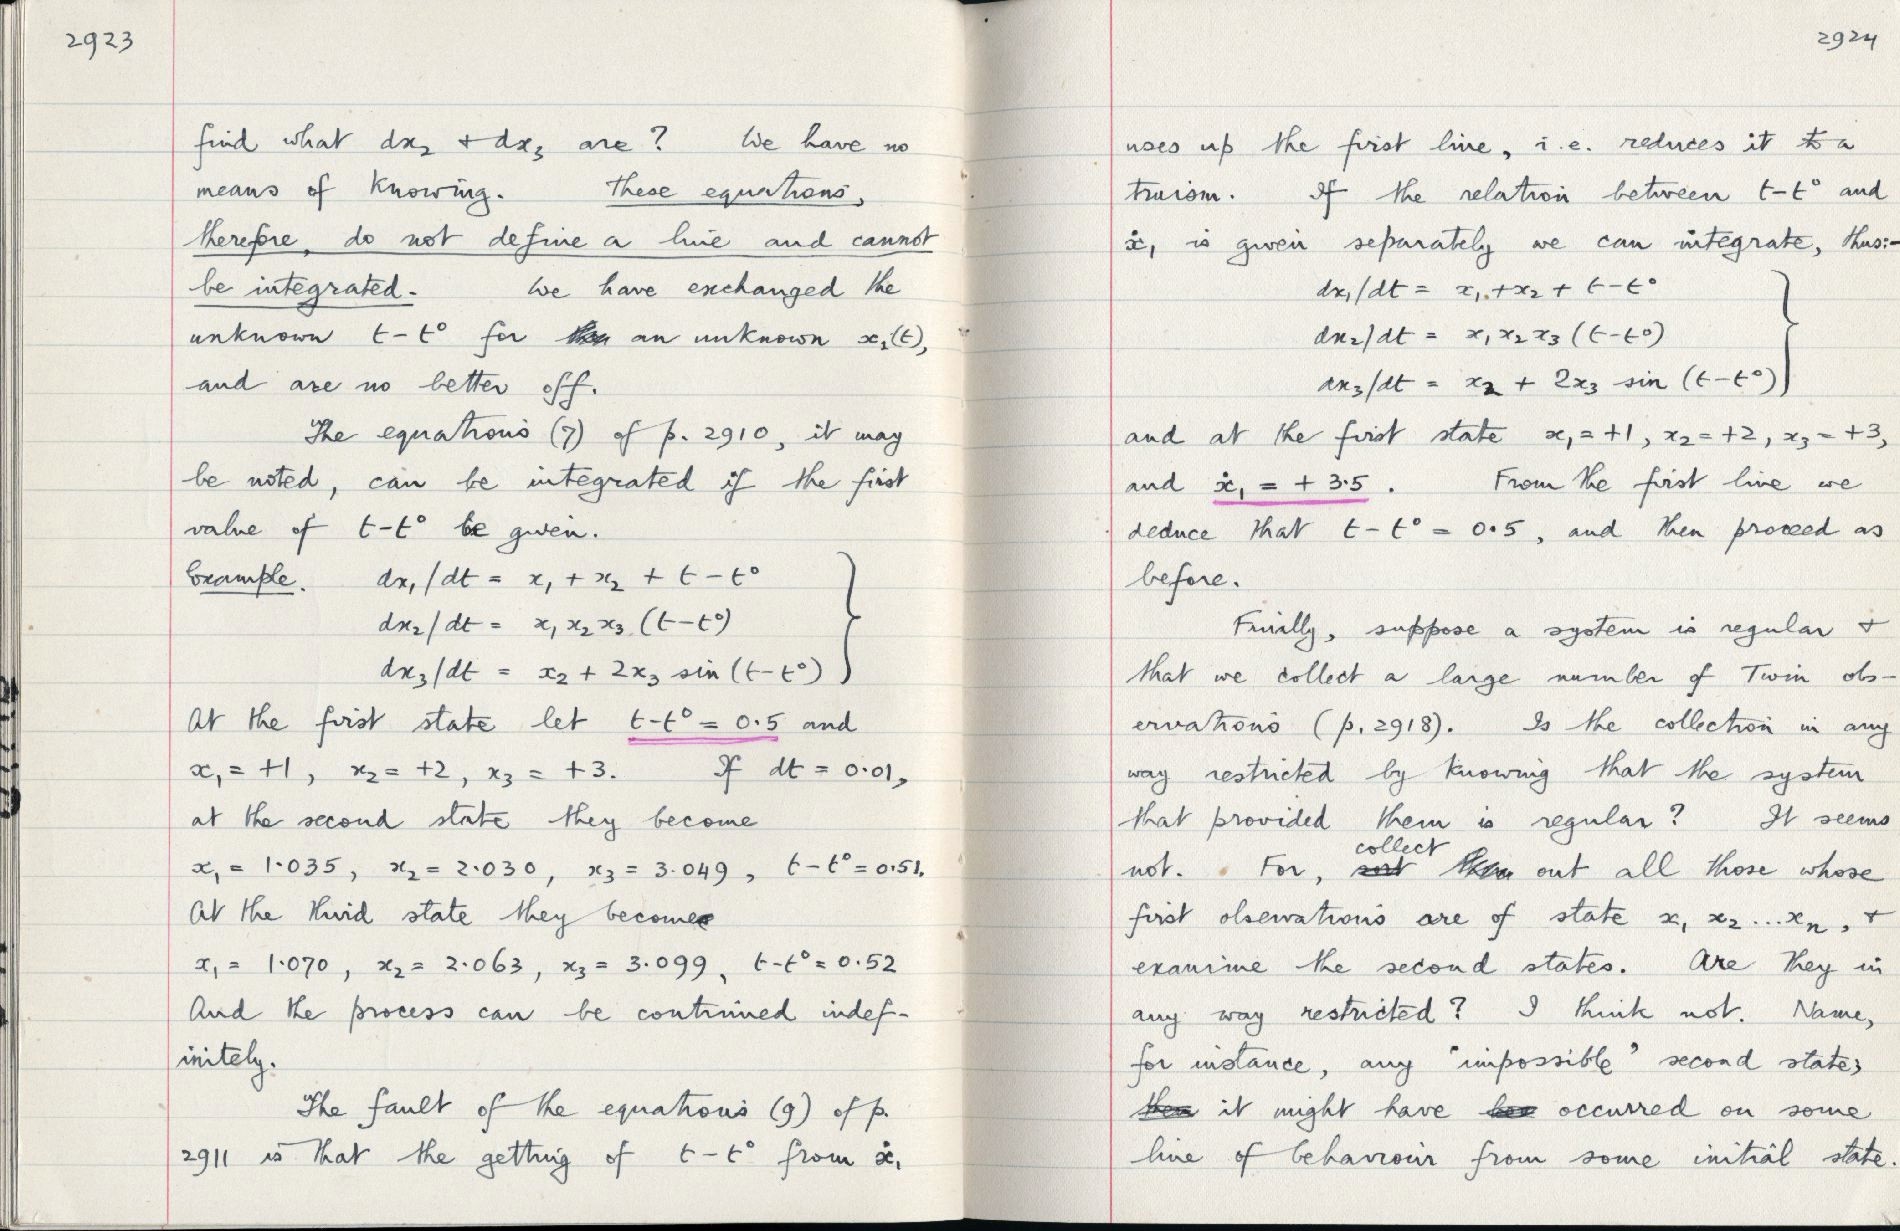 2923
find what dx₂ + dx₃ are? We have no
means of knowing. These equations,
therefore, do not define a line and cannot
be integrated. We have exchanged the
unknown t-t° for an unknown x₁(t),
and are no better off.
The equations (7) of p. 2910, it may
be noted, can be integrated if the first
value of t-t° be given.
Example. dx₁/dt = x₁ + x₂ + t-t°
dx₂/dt = x₁ x₂ x₃ (t-t°)
dx₃/dt = x₂ + 2x₃ sin (t-t°)
At the first state let t-t° = 0.5 and
x₁ = +1, x₂ = +2, x₃ = +3. If dt = 0.01,
at the second state they become
x₁ = 1.035, x₂ = 2.030, x₃ = 3.049, t-t° = 0.51.
At the third state they become
x₁ = 1.070, x₂ = 2.063, x₃ = 3.099, t-t° = 0.52
And the process can be continued indef-
initely.
The fault of the equations (9) of p.
2911 is that the getting of t-t° from ẋ₁
2924
uses up the first line, i.e. reduces it to a
truism. If the relation between t-t° and
ẋ₁ is given separately we can integrate, thus:-
dx₁/dt = x₁ + x₂ + t-t°
dx₂/dt = x₁ x₂ x₃ (t-t°)
dx₃/dt = x₂ + 2x₃ sin (t-t°)
and at the first state x₁ = +1, x₂ = +2, x₃ = +3,
and ẋ₁ = + 3.5. From the first line we
deduce that t-t° = 0.5, and then proceed as
before.
Finally, suppose a system is regular +
that we collect a large number of Twin obs-
ervations (p. 2918). Is the collection in any
way restricted by knowing that the system
that provided them is regular? It seems
not. For, collect out all those whose
first observations are of state x₁ x₂ ... xₙ, +
examine the second states. Are they in
any way restricted? I think not. Name,
for instance, any "impossible" second state;
it might have occurred on some
line of behaviour from some initial state.